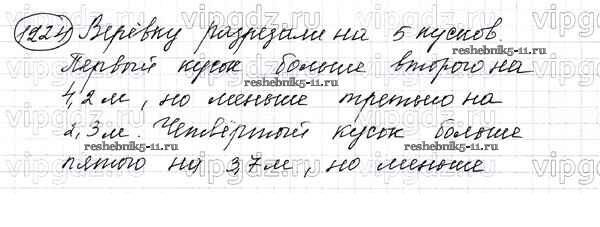 1224) Верёвку разрезали на 5 кусков.
Первый кусок больше второго на
4,2 м, но меньше третьего на
2,3 м. Четвёртый кусок больше
пятого на 3,7 м, но меньше
reshebnik5-11.ru
reshebnik5-11.ru